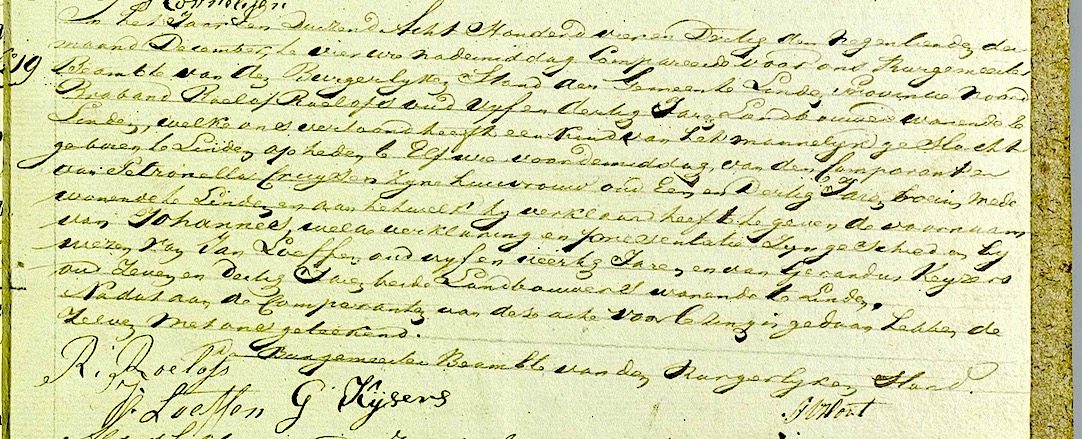 In het Jaar Een Duizend Acht Honderd vier en Dertig den Negentienden der
maand December, te vier ure nademiddag Compareerde voor ons Burgemeester
19 beambte van den Burgerlyken Stand der Gemeente Linden, Provintie Noord
Braband Roelof Roelofs oud vyf en dertig Jaren Landbouwer wonende te
Linden, welke ons verklaard heeft een kind van het mannelyk geslacht
geboren te Linden op heden te Elf ure voordemiddag, van den Comparant en
van Petronella Cruysen zyne huisvrouw oud Een en Dertig Jaren boerin mede
wonende te Linden, en aan hetwelk hy verklaard heeft te geven de voornaam
van Johannes, welke verklaring en presentatie zyn geschied en by
wezen van Jan Loeffen, oud vyf en veertig Jaren, en van Gerardus Keyzers
oud Zeven en Dertig Jaren beide Landbouwers wonende te Linden,
Nadat aan de Comparanten van deze acte voorlezing is gedaan hebben de
zelven met ons geteekend.
De Burgemeester Beambte van den Burgerlyken Stand
R. Roelofs
J. Loeffen G Kysers